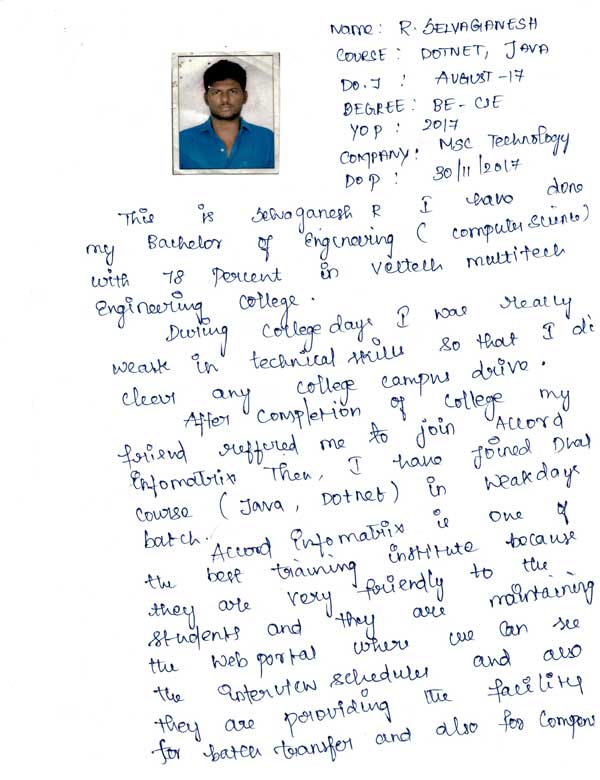 Name: R. SELVAGANESH
COURSE: DOTNET, JAVA
DO.J : AUGUST-17
DEGREE: BE-CSE
YOP : 2017
COMPANY: MSC Technology
DOP : 30/11/2017
This is Selvaganesh R I have done
my Bachelor of Engineering (computer science)
with 78 Percent in Veltech multitech
Engineering college.
During college days I was really
weak in technical skills so that I di
clear any college campus drive.
After completion of college my
friend reffered me to join Accord
Infomatrix Then, I have joined Dual
course (Java, Dotnet) in weakdays
batch.
Accord Infomatrix is one of
the best training institute because
they are very friendly to the
students and they are maintaining
the web portal where we can see
the interview schedules and also
they are peroviding the facility
for batch transfer and also for Compens